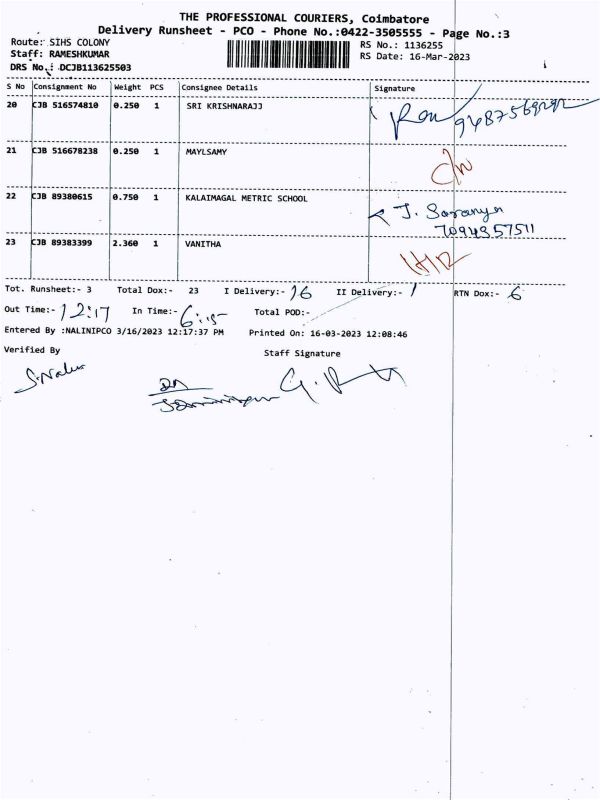 THE PROFESSIONAL COURIERS, Coimbatore
Delivery Runsheet - PCO - Phone No.:0422-3505555 - Page No.:3
Route: SIHS COLONY
RS No.: 1136255
Staff: RAMESHKUMAR
RS Date: 16-Mar-2023
DRS No.: DCJB113625503
S No Consignment No Weight PCS Consignee Details Signature
20 CJB 516574810 0.250 1 SRI KRISHNARAJJ
21 CJB 516678238 0.250 1 MAYLSAMY
22 CJB 89380615 0.750 1 KALAIMAGAL METRIC SCHOOL J. Saranya
7094357511
23 CJB 89383399 2.360 1 VANITHA
Tot. Runsheet:- 3 Total Dox:- 23 I Delivery:- 16 II Delivery:- 1 RTN Dox:- 6
Out Time:- 12:17 In Time:- 6:15 Total POD:-
Entered By :NALINIPCO 3/16/2023 12:17:37 PM Printed On: 16-03-2023 12:08:46
Verified By Staff Signature
S.Nalini